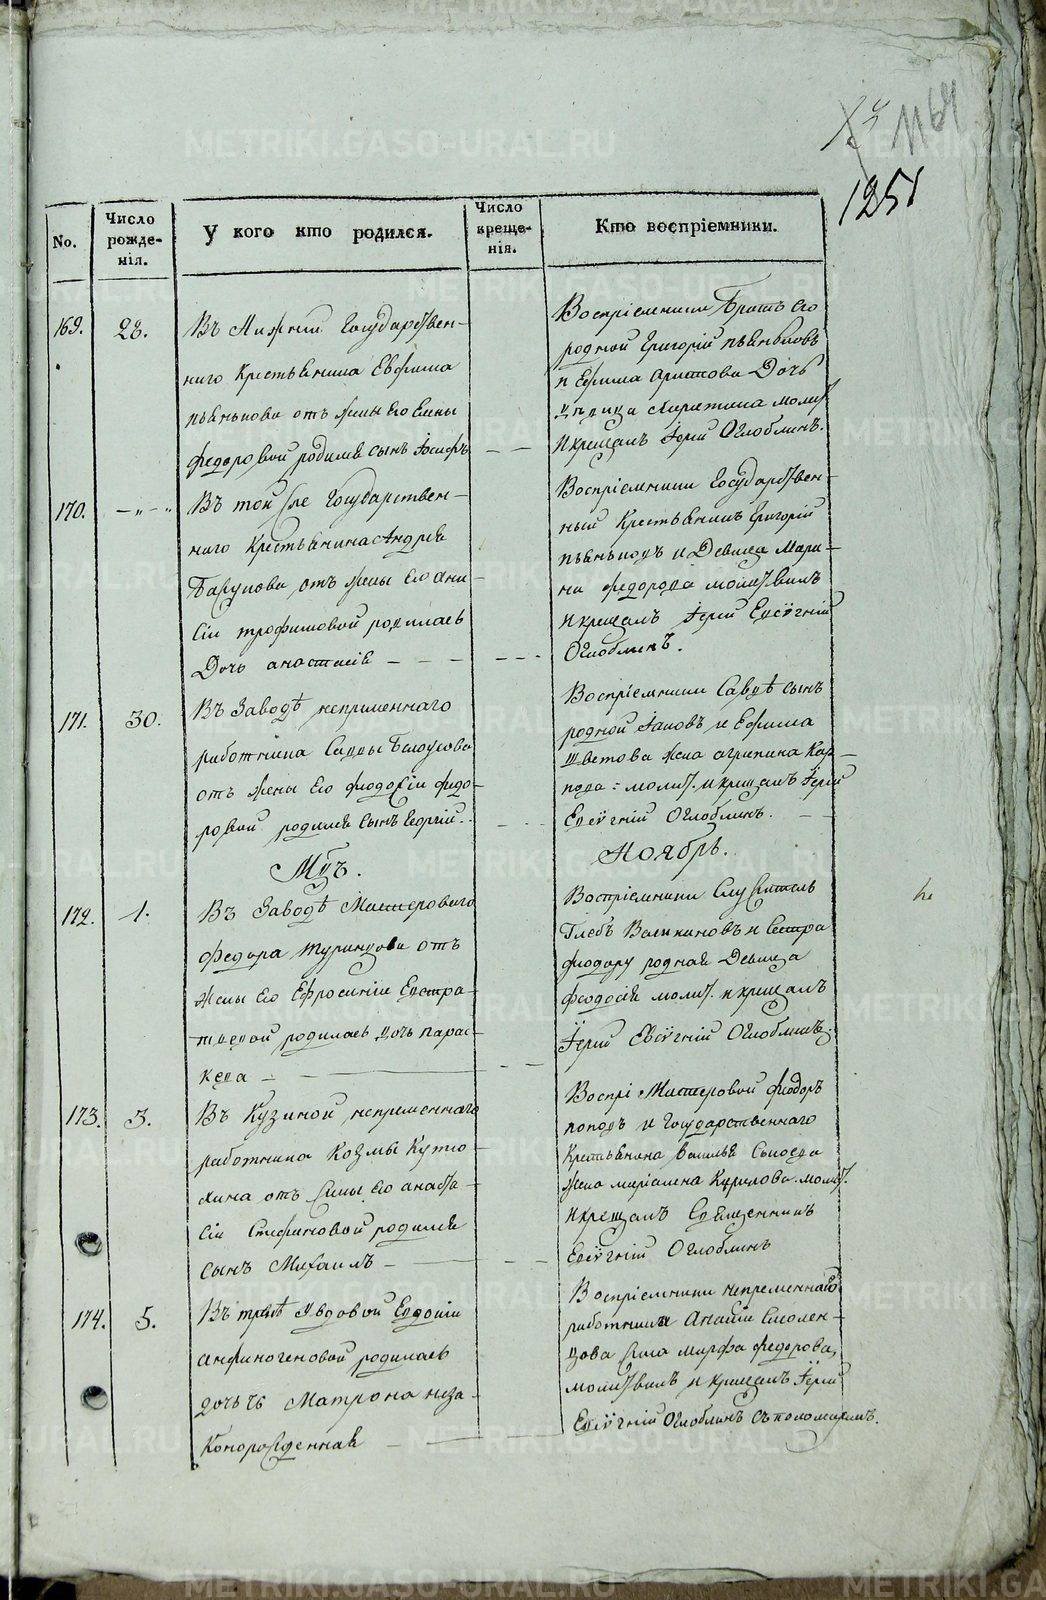 1164
1251
No.
Число рожде-нія.
У кого кто родился.
Число креще-нія.
Кто воспріемники.
169. 28.
Въ Нижній Государствен-
наго Крестьянина Евфима
пьянкова отъ жены его Елены
федоровой родился сынъ Іосифъ
Воспріемники Братъ его
родной Григорій пьянковъ
и Ефима Аристова Дочь
девица молит
и крещалъ Іерей Оглоблинъ.
170. — „ — „
Въ той же Государствен-
наго Крестьянина Андрея
отъ жены его Ани-
сіи трофимовой родилась
Дочь анастасія
Воспріемники Государствен-
ный Крестьянинъ Григорій
пьянковъ и Девица Мари-
на федорова молитвилъ
и крещалъ Іерей Евгеній
Оглоблинъ.
171. 30.
Въ Заводѣ непременнаго
работника Саввы Белоусова
отъ жены его феодосіи федо-
ровой родился сынъ Георгій.
Воспріемники Саввѣ сынъ
родной Іаковъ и Ефима
жена агрипина Кар-
пова: молит. и крещалъ Іерей
Евгеній Оглоблинъ.
Ноябрь.
172. 1.
Въ Заводѣ Мастероваго
федора Туринцова отъ
жены его Ефросиніи Евстра-
тьевой родилась дочь парас-
кева
Воспріемники Служитель
Глебъ и Сестра
феодору родная Девица
феодосія молит. и крещалъ
Іерей Евгеній Оглоблинъ.
173. 3.
Въ Кузиной непременнаго
работника Козмы
отъ жены его анаста-
сіи Стефановой родился
сынъ Михаилъ
Воспрі Мастеровой феодоръ
поповъ и Государственнаго
Крестьянина василья
жена маріамна Кирилова. молит.
и крещалъ Священникъ
Евгеній Оглоблинъ
174. 5.
Въ трекѣ у вдовой Евдокіи
анфиногеновой родилась
дочь Матрона неза-
конорожденная
Воспріемники непременнаго
работника Ананіи Смолен-
цова жена марфа федорова,
молитвилъ и крещалъ Іерей
Евгеній Оглоблинъ съ поломаремъ.